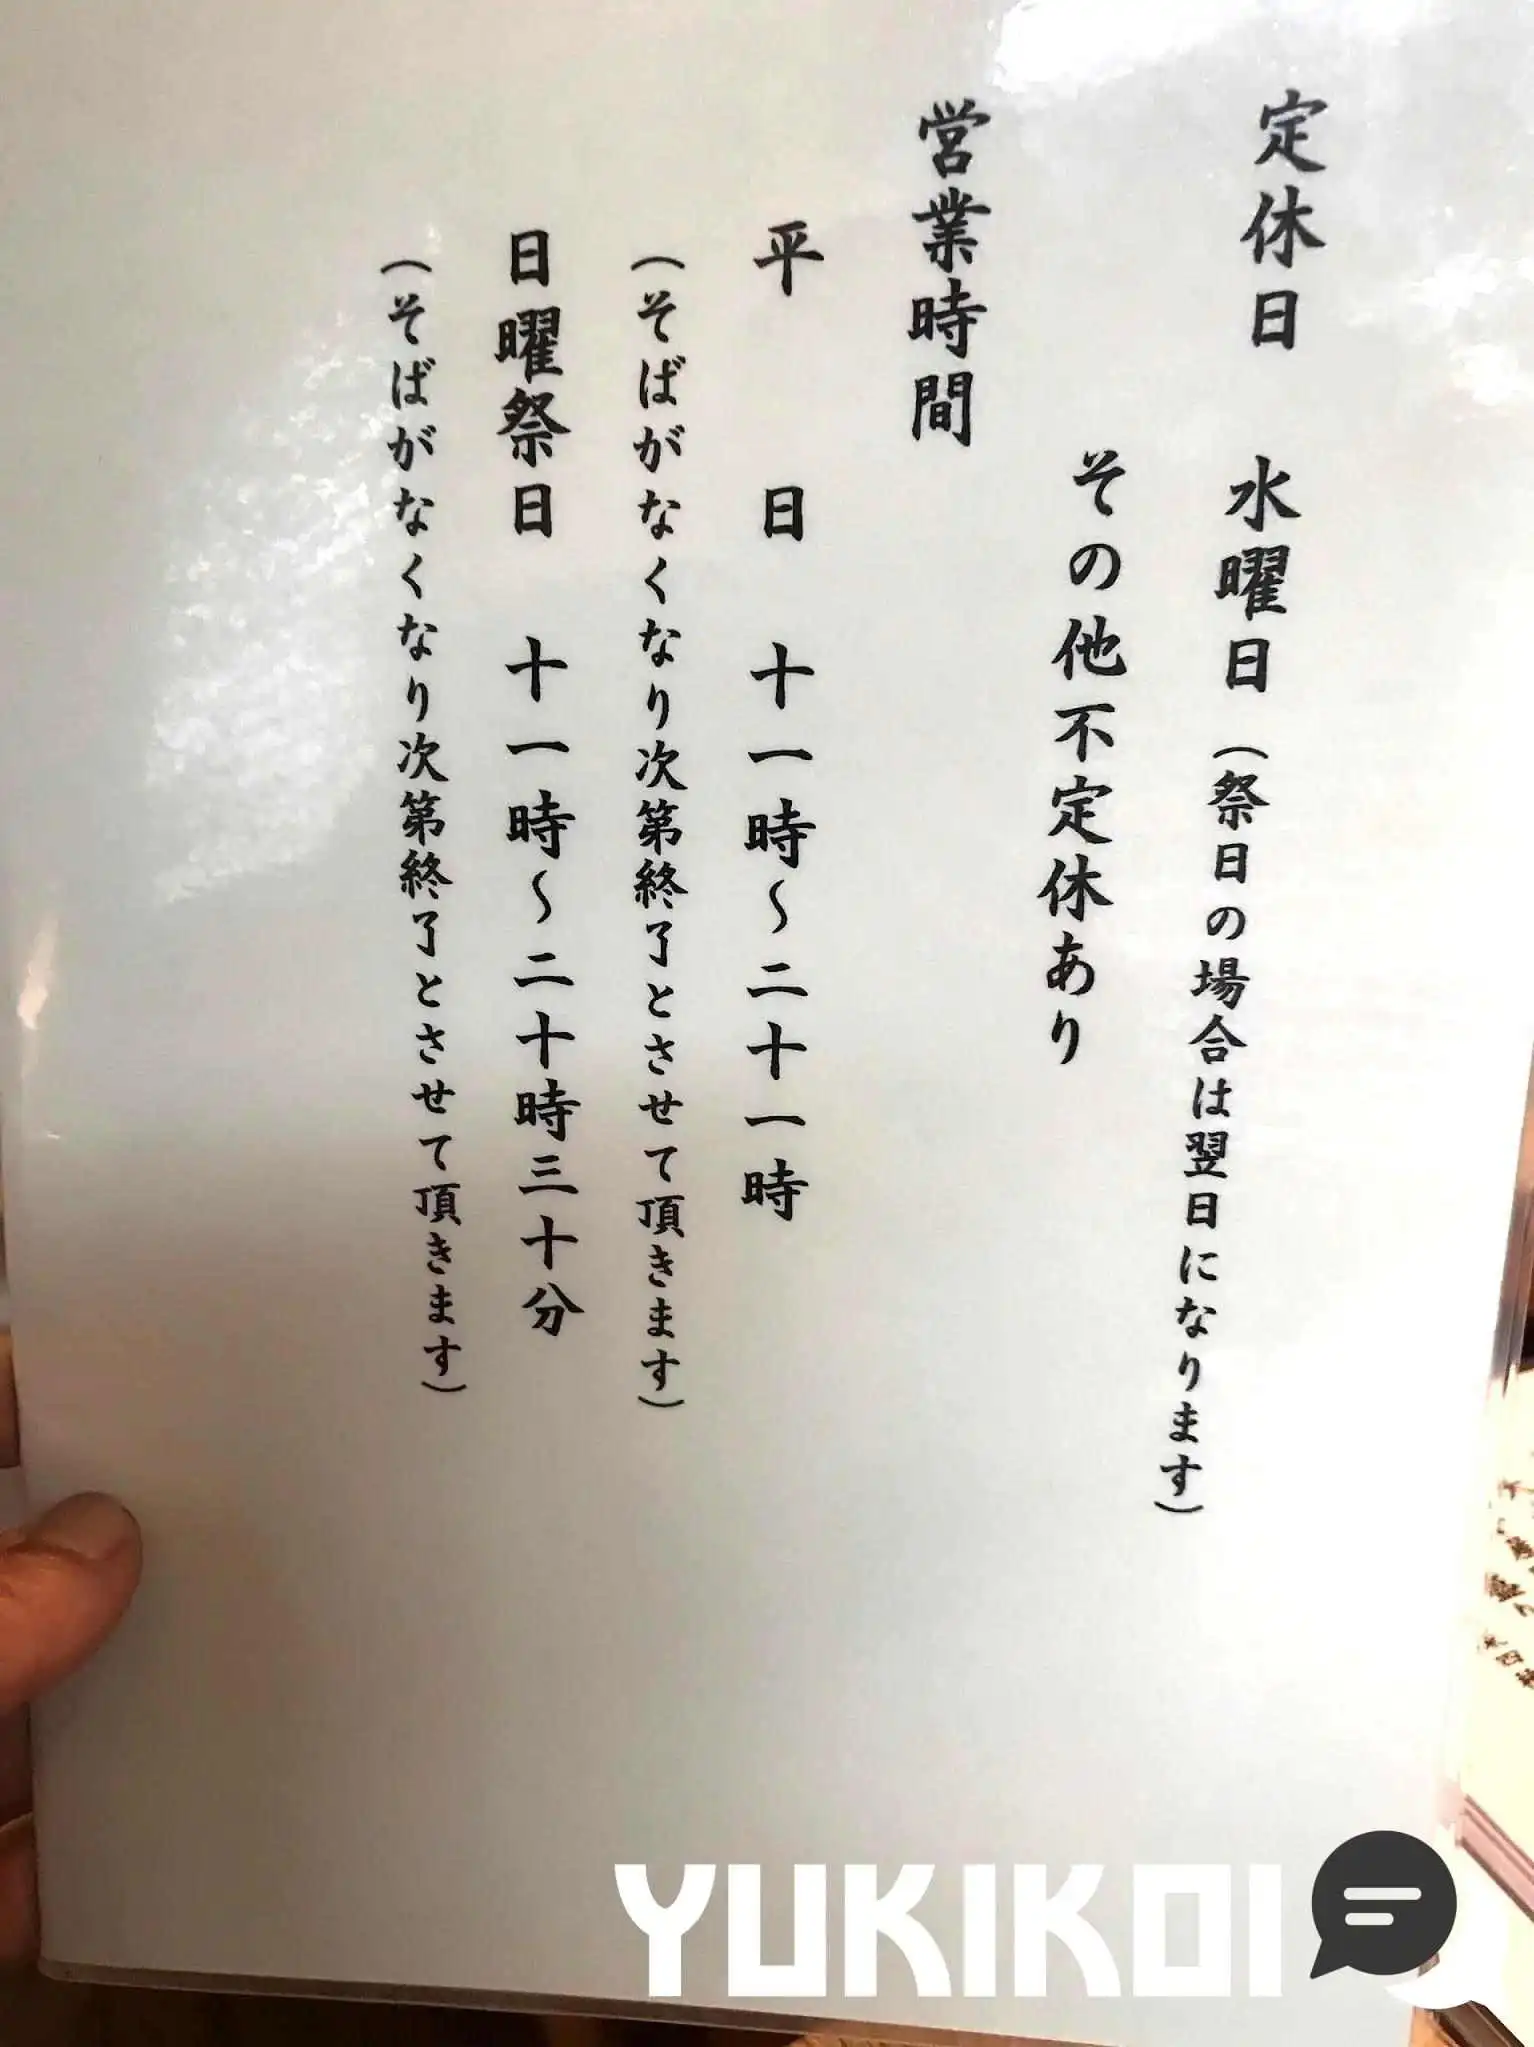 定休日 水曜日(祭日の場合は翌日になります)
その他不定休あり
営業時間
平日 十一時~二十一時
(そばがなくなり次第終了とさせて頂きます)
日曜祭日 十一時~二十時三十分
(そばがなくなり次第終了とさせて頂きます)
YUKIKOI